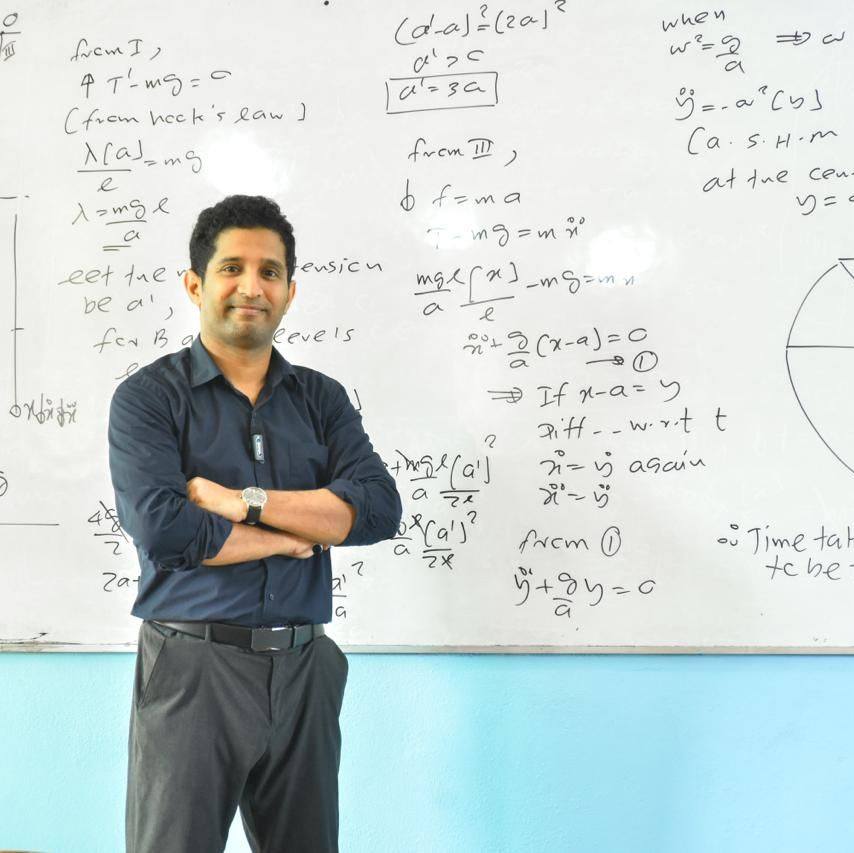 from I,
↑ T' - mg = 0
(from hook's law)
λ[a]/l = mg
λ = mg l/a
let the ension
be a',
for B a levels
(a'-a)² = (2a)²
a' > 0
a' = 3a
from III,
↓ f = ma
T - mg = mẍ
mgl/a [x]/l - mg = mẍ
ẍ + g/a (x-a) = 0
→ ①
⇒ If x-a = y
Diff .. w.r.t t
ẋ = ẏ again
ẍ = ÿ
+ mgl/a [a']²/2l
l/a [a']²/2l
2a+ a'²/a
from ①
ÿ + g/a y = 0
when
w² = g/a ⇒ w
ÿ = -w²[y]
(a. S. H. m
at the cen
y =
∴ Time tak
to be